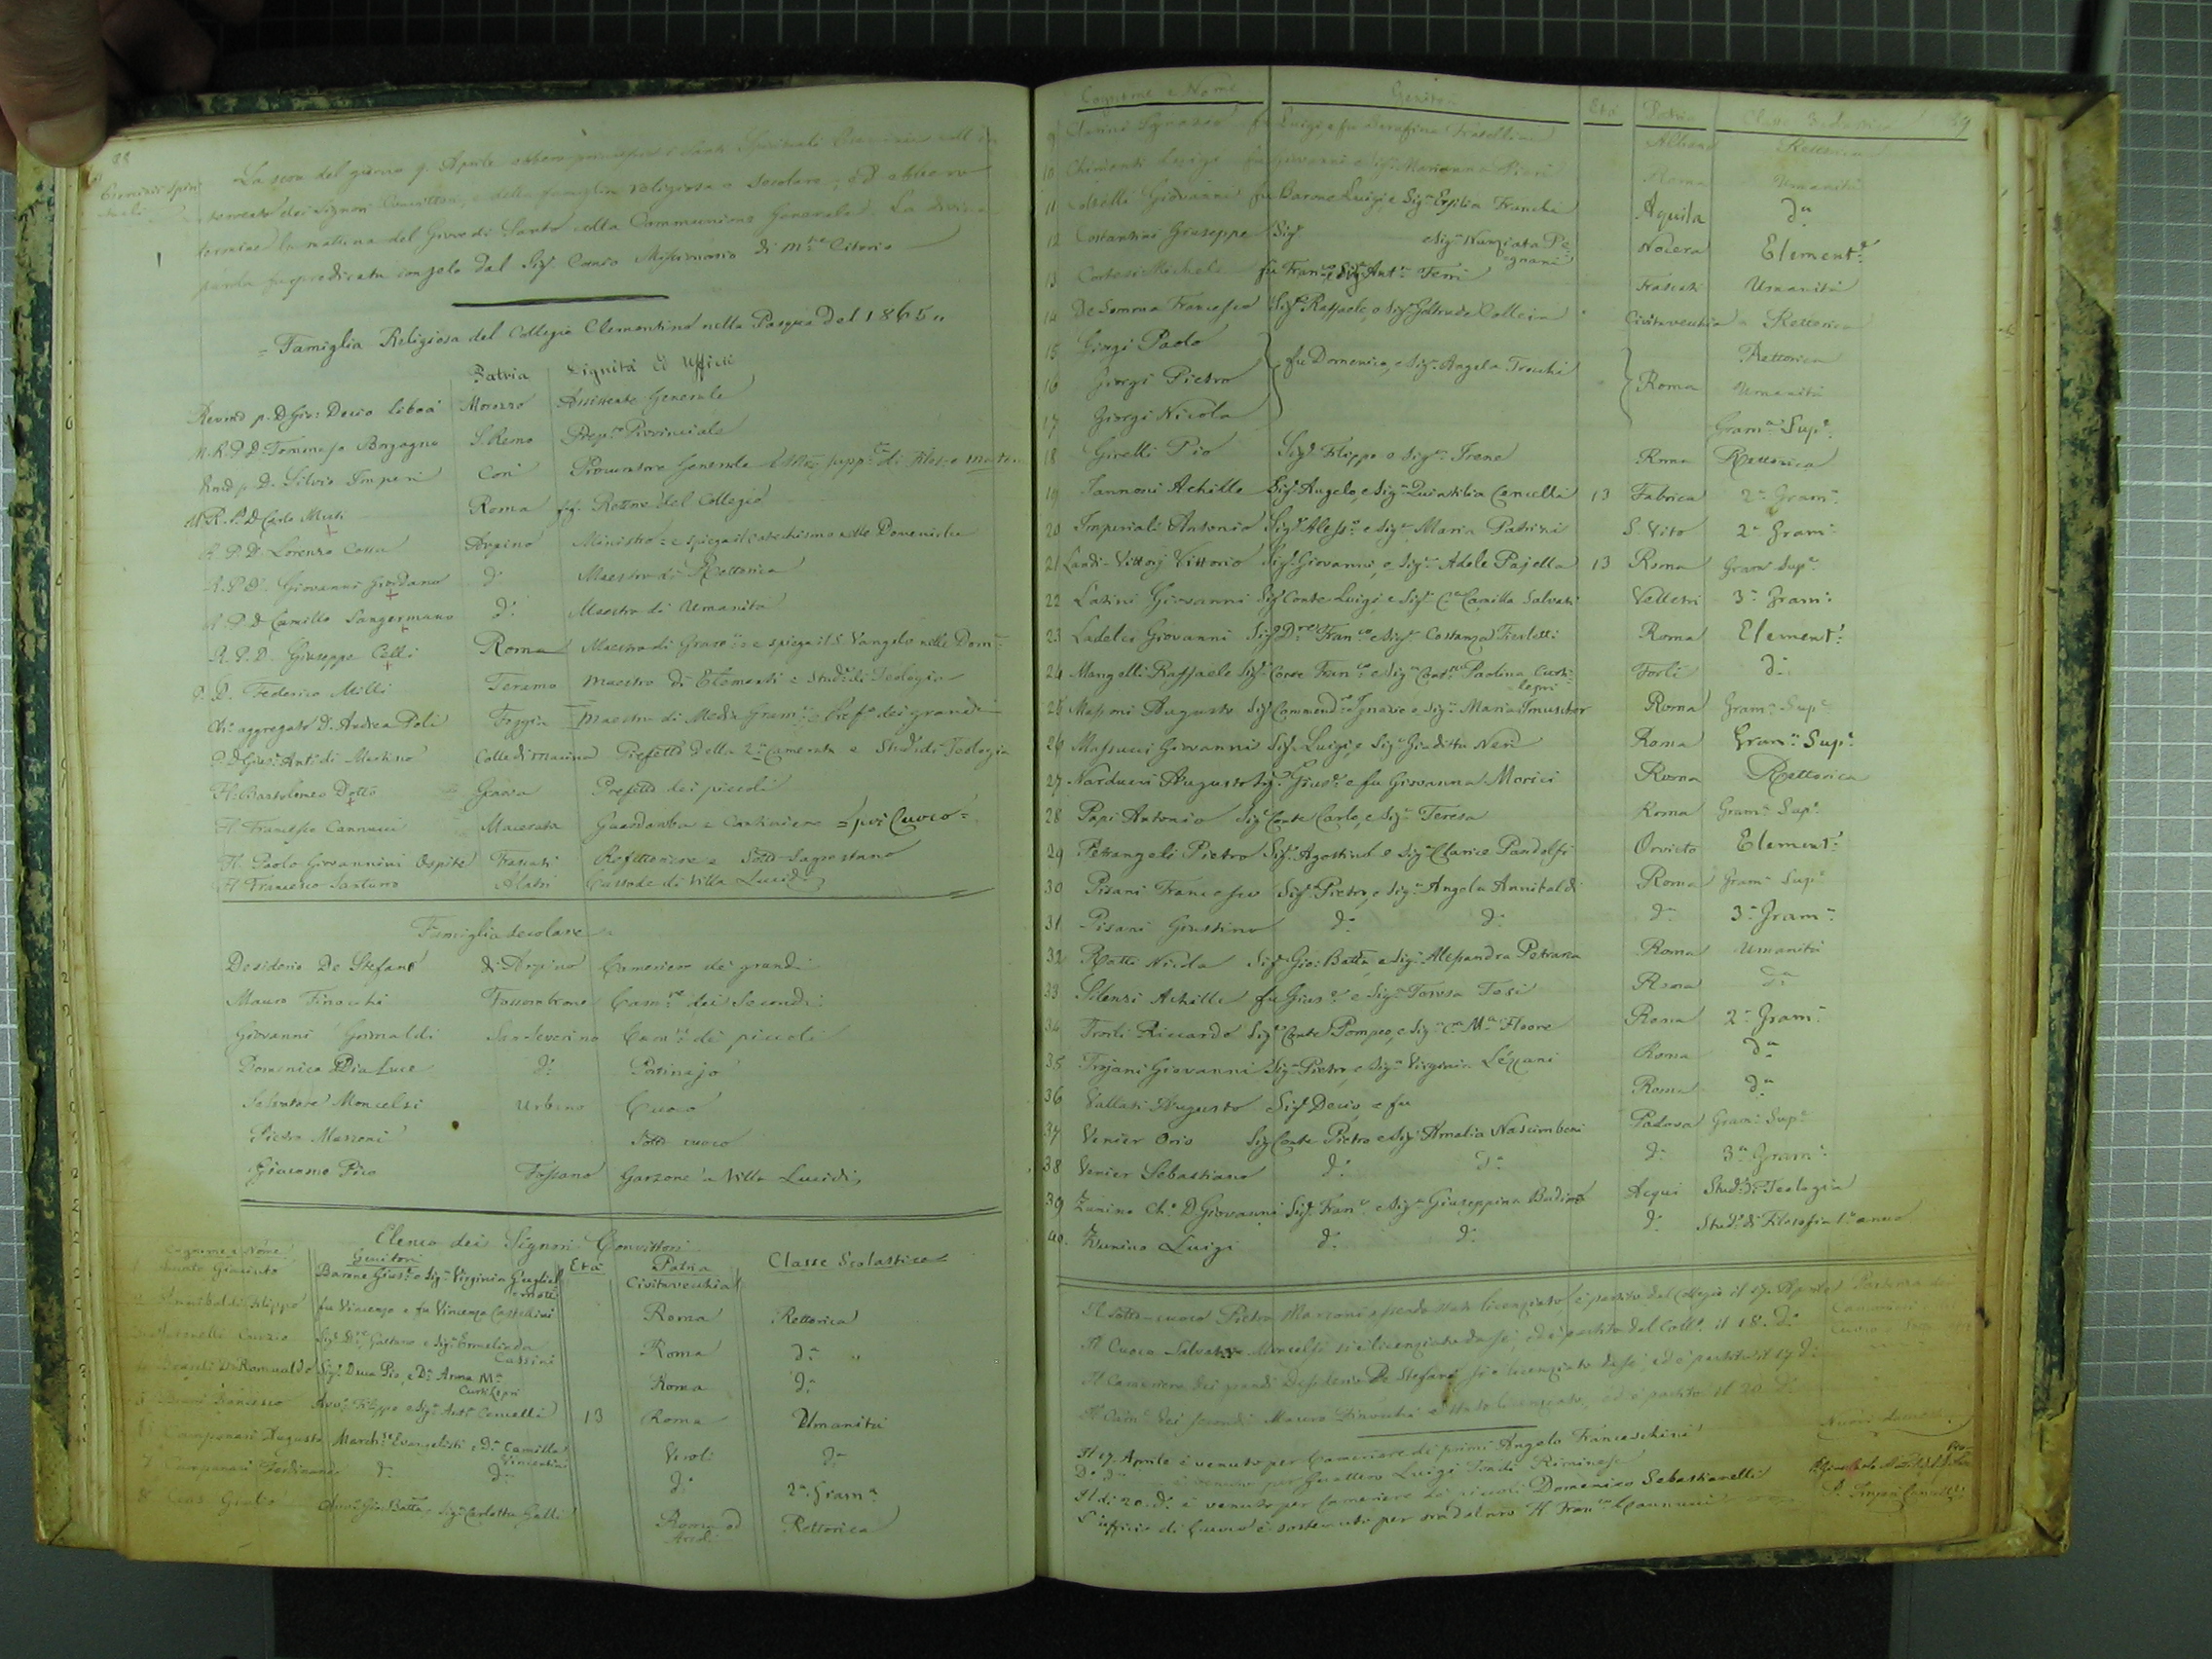 88
Esercizi Spirituali
La sera del giorno 9. Aprile ebbero principio i Santi Spirituali Esercizi coll' in
tervento dei Signori Convittori, e della famiglia religiosa e secolare, ed ebbero
termine la mattina del Giovedì Santo colla Communione Generale. La divina
parola fu predicata con zelo dal Sigr. Missionario di Mte Citorio
= Famiglia Religiosa del Collegio Clementino nella Pasqua del 1865 "
Patria Dignità ed Ufficii
Revmo p. D. Gio: Decio Libois Morozzo Assistente Generale
M. R. P. D. Tommaso Borgogno S. Remo Prepto Provinciale
Rmo p. D. Silvio Imperi Cori Procuratore Generale
M. R. P. D. Carlo Muti Roma ff. Rettore del Collegio
R. P. D. Lorenzo Cossa Arpino Ministro = e spiega il Catechismo nelle Domeniche
R. P. D. Giovanni Giordano d.o Maestro di Rettorica
R. P. D. Camillo Sangermano d.o Maestro di Umanità
R. P. D. Giuseppe Celli Roma Maestro di Gramca = e spiega il S. Vangelo nelle Dom.e
P. D. Federico Milli Teramo Maestro di Elementi = Stud.e di Teologia
Ch.o aggregato D. Andrea Poli Foggia Maestro di Media Gram.a e Pref.o dei grandi
P. D. Gius. Ant. di Martino Colledimacina Prefetto della 2.a Camerata e Stud.e di Teologia
Fl. Bartolomeo Dotto Prefetto dei piccoli
Fl. Francesco Cannucci Macerata Guardaroba = Cantiniere = poi Cuoco =
Fl. Paolo Giovannini Ospite Frascati Refettoriere e Sotto-Sagrestano
Fl. Francesco Santoro Alatri Custode di Villa Lucidi
Famiglia Secolare
Desiderio De Stefano di Arpino Cameriere dei grandi
Mauro Finocchi Fossombrone Cam.re dei Secondi
Giovanni Grimaldi San-Severino Cam.re di piccoli
Domenico DiaLuce d.o Portinajo
Salvatore Moncelsi Urbino Cuoco
Pietro Marzoni Sotto cuoco
Giacomo Pico Fossano Garzone a Villa Lucidi
Elenco dei Signori Convittori
Cognome e Nome Genitori Età Patria Classe Scolastica
1 Giacinto Barone Gius.e e Sig.a Virginia Gugliel
motti Civitavecchia
2 Annibaldi Filippo fu Vincenzo e fu Vincenza Castellini Roma Rettorica
3 Antonelli Curzio Sig.r D.re Gaetano e Sig.a Ermelinda
Cassini Roma d.a "
4 Braschi D. Romualdo Sig.r Duca Pio, e D.a Anna M.a
Curti Lepri Roma d.a
5 Francesco Avv.o Filippo e Sig.a Ant.a Cencelli 13 Roma Umanità
6 Campanari Augusto March.se Evangelisti e D.a Camilla
Vincentini Veroli d.a
7 Campanari Ferdinando d.i d.a d.i 2.a Gram.a
8 Giulio Avv.o Gio. Batta e Sig.a Carlotta Galli Roma Rettorica
89
Cognome e Nome Genitori Età Patria Classe Scolastica
9 Clarini Ignazio fu Luigi e fu Serafina Albano Rettorica
10 Chimenti Luigi fu Giovanni e Sig.a Marianna Roma Umanità
11 Giovanni fu Barone Luigi, e Sig.a Ersilia Franchi Aquila d.a
12 Costantini Giuseppe Sig.r e Sig.a Nunziata Pe
gnani Nocera Element.i
13 Cortesi Michele fu Fran.co e Sig.a Ant.a Ferri Frascati Umanità
14 De Somma Francesco Sig.r Raffaele, e Sig.a Geltrude Calleia Civitavecchia Rettorica
15 Giorgi Paolo Rettorica
16 Giorgi Pietro fu Domenico, e Sig.a Angela Trocchi Roma Umanità
17 Giorgi Nicola Gram.a Sup.e
18 Girelli Pio Sig.r Filippo e Sig.a Irene Roma Rettorica
19 Jannoni Achille Sig.r Angelo, e Sig.a Quintilia Cencelli 13 Fabrica 2.a Gram.a
20 Imperiali Antonio Sig.r Aless.o e Sig.a Maria Patrizi S. Vito 2.a Gram.a
21 Landi-Vittorj Vittorio Sig.r Giovanni, e Sig.a Adele Pajella 13 Roma Gram. Sup.e
22 Latini Giovanni Sig.r Conte Luigi e Sig.a C.a Camilla Salvati Velletri 3.a Gram.a
23 Ladelci Giovanni Sig.r D.re Fran.co e Sig.a Costanza Ficaletti Roma Element.i
24 Mangelli Raffaele Sig.r Conte Fran.co e Sig.a Cont.a Paolina Curti-
lepri Forlì d.i
25 Massoni Augusto Sig.r Commend.re Ignazio e Sig.a Maria Smuscher Roma Gram.a Sup.e
26 Massucci Giovanni Sig.r Luigi, e Sig.a Giuditta Neri Roma Gram.a Sup.e
27 Narducci Augusto Sig.r Gius.e e fu Giovanna Morici Roma Rettorica
28 Papi Antonio Sig.r Conte Carlo, e Sig.a Teresa Roma Gram.a Sup.e
29 Petrangeli Pietro Sig.r Agostino e Sig.a Clarice Pandolfi Orvieto Element.i
30 Pisani Francesco Sig.r Pietro, e Sig.a Angela Annibaldi Roma Gram.a Sup.e
31 Pisani Giustino d.o d.a d.a 3.a Gram.a
32 Ratti Nicola Sig.r Gio: Batta, e Sig.a Alessandra Petrarca Roma Umanità
33 Silenzi Achille fu Gius.e e Sig.a Teresa Tesi Roma d.a
34 Troili Riccardo Sig.r Conte Pompeo, e Sig.a C.a M.a Floore Roma 2.a Gram.a
35 Trojani Giovanni Sig.r Pietro, e Sig.a Virginia Lezzani Roma d.a
36 Vallati Augusto Sig.r Decio e fu Roma d.a
37 Venier Orio Sig.r Conte Pietro e Sig.a Amalia Nascimbeni Padova Gram. Sup.e
38 Venier Sebastiano d.i d.a d.i 3.a Gram.a
39 Zunino Ch.o D. Giovanni Sig.r Fran.co e Sig.a Giuseppina Acqui Stud.e di Teologia
40. Zunino Luigi d.i d.i d.i Stud.e di Filosofia 1.o anno
Il sotto-cuoco Pietro Marzoni essendo stato licenziato, è partito dal Collegio il 17. Aprile
Il Cuoco Salvatore Moncelsi si è licenziato da se, ed è partito dal Coll.o il 18. d.o
Il Cameriere dei grandi Desiderio De Stefano si è licenziato da se, ed è partito il 19 d.o
Il Cam.e dei secondi Mauro Finocchi è stato licenziato, ed è partito il 20. d.o
Partenza dei
Camerieri
Il 17. Aprile è venuto per Cameriere di primi Angelo Franceschini
D.o d.o è venuto per Guattero Luigi Tondi Riminese
Il dì 20. d.o è venuto per Cameriere dei piccoli Domenico Sebastianelli
L'ufficio di Cuoco è sostenuto per ora dal nro Fl. Fran.co Cannucci
Nuovi